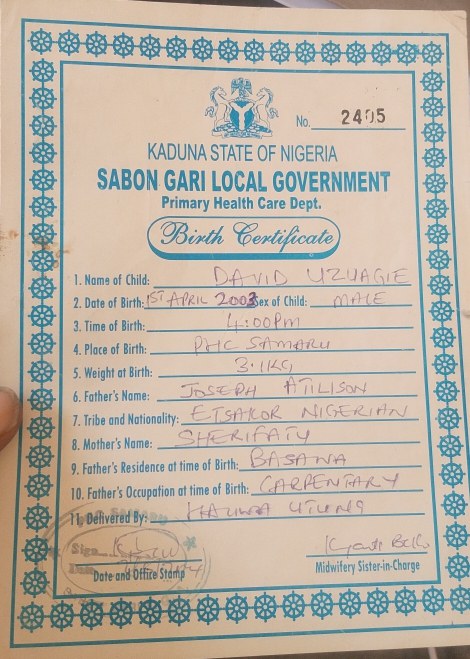 No. 2405
KADUNA STATE OF NIGERIA
SABON GARI LOCAL GOVERNMENT
Primary Health Care Dept.
Birth Certificate
1. Name of Child: DAVID UZUAGIE
2. Date of Birth: 1ST APRIL 2003 Sex of Child: MALE
3. Time of Birth: 4:00PM
4. Place of Birth: PHC SAMARU
5. Weight at Birth: 3.1KG
6. Father's Name: JOSEPH ATILISON
7. Tribe and Nationality: ETSAKOR NIGERIAN
8. Mother's Name: SHERIFATU
9. Father's Residence at time of Birth: BASAWA
10. Father's Occupation at time of Birth: CARPENTARY
11. Delivered By:
Sign
Date and Office Stamp
Midwifery Sister-in-Charge